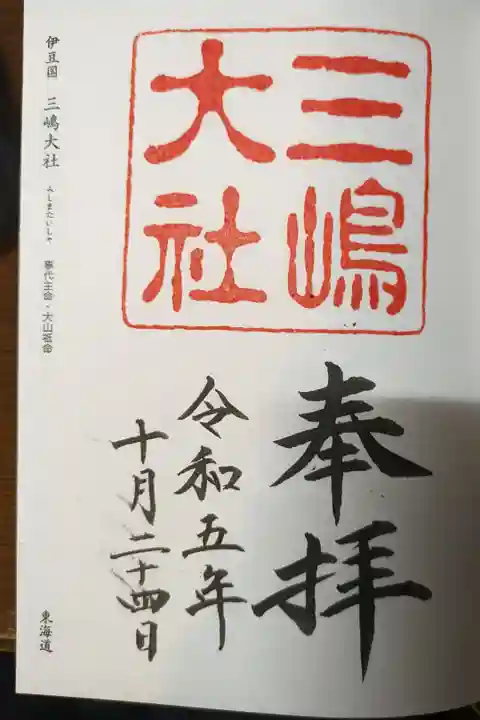 三嶋
大社
奉拝
令和五年
十月二十四日
伊豆国 三嶋大社 みしまたいしゃ 事代主命・大山祇命
東海道